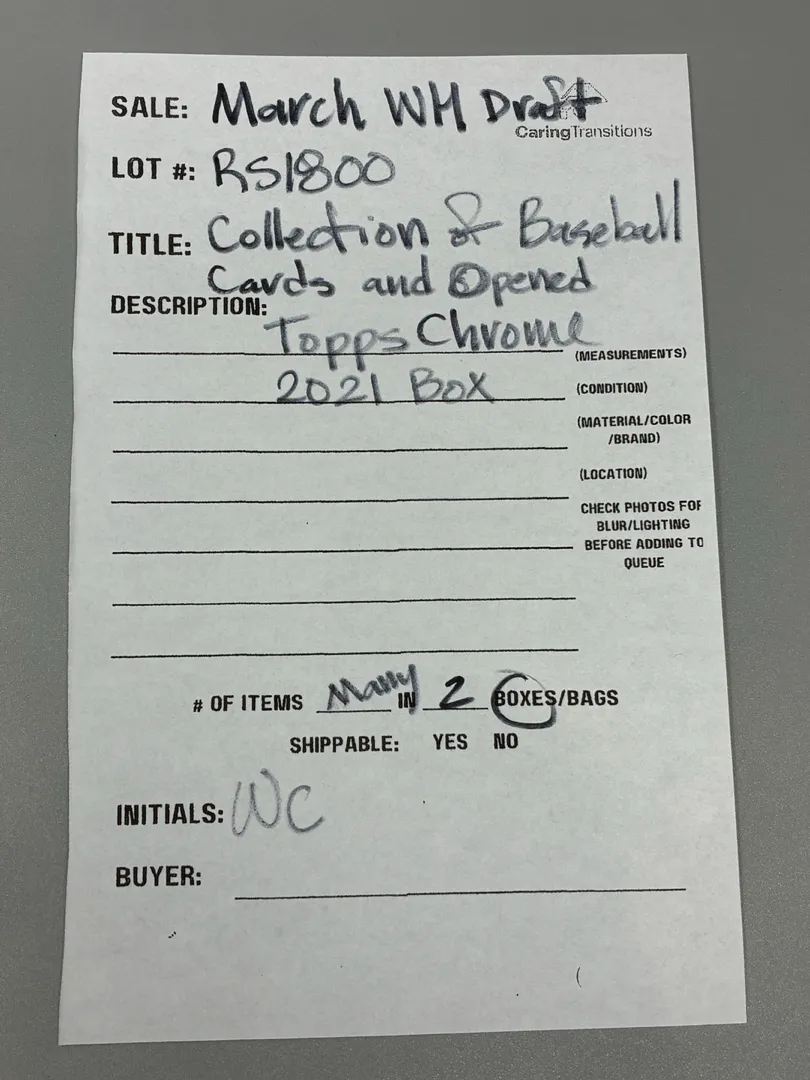 SALE: March WH Draft
CaringTransitions
LOT #: RS1800
TITLE: Collection of Baseball
Cards and Opened
DESCRIPTION:
Topps Chrome
(MEASUREMENTS)
2021 Box
(CONDITION)
(MATERIAL/COLOR
/BRAND)
(LOCATION)
CHECK PHOTOS FOR
BLUR/LIGHTING
BEFORE ADDING TO
QUEUE
# OF ITEMS Many IN 2 BOXES/BAGS
SHIPPABLE: YES NO
INITIALS: WC
BUYER: